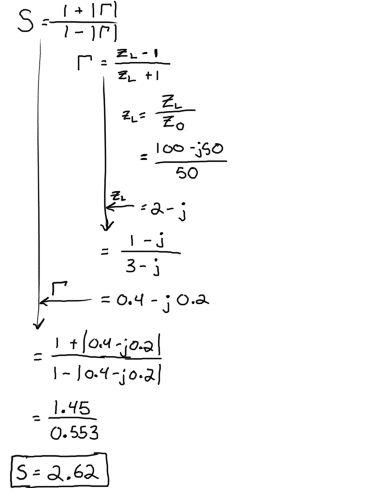 S = (1 + |Γ|) / (1 - |Γ|)
Γ = (z_L - 1) / (z_L + 1)
z_L = Z_L / Z_0
= (100 - j50) / 50
z_L
= 2 - j
= (1 - j) / (3 - j)
Γ
= 0.4 - j0.2
= (1 + |0.4 - j0.2|) / (1 - |0.4 - j0.2|)
= 1.45 / 0.553
S = 2.62